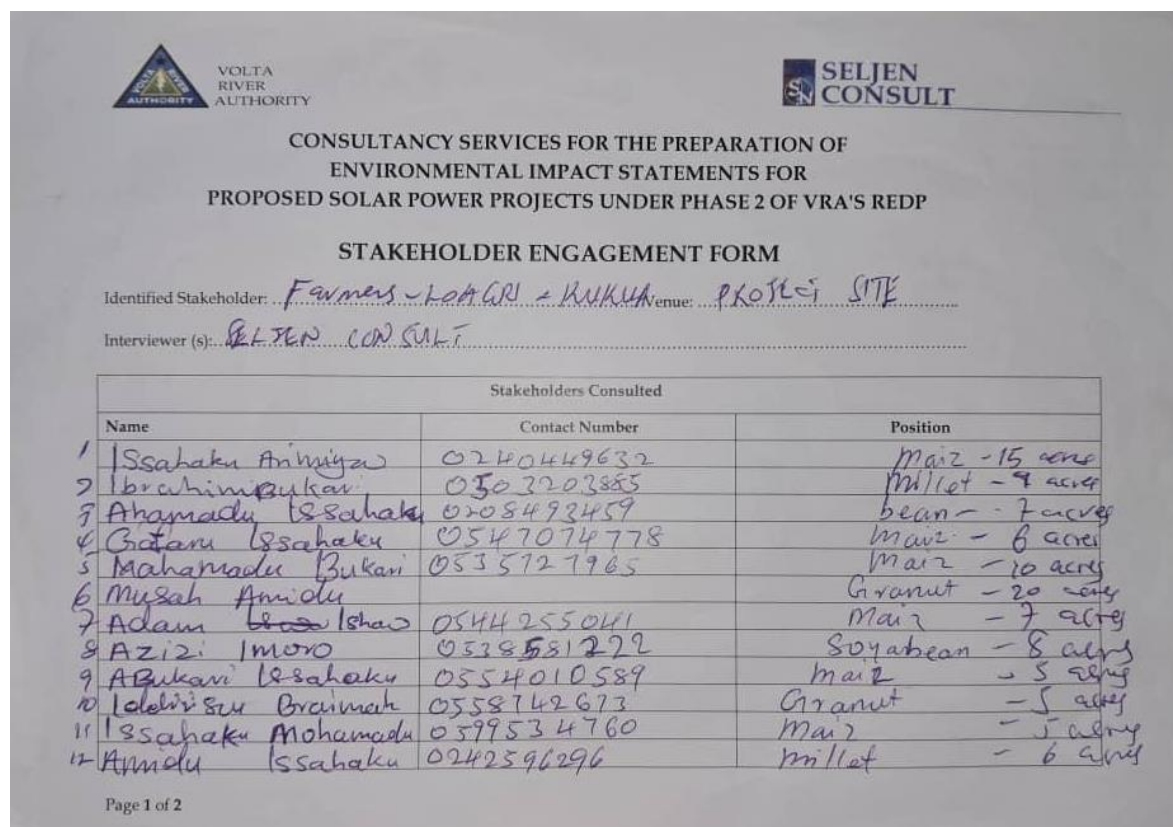 VOLTA
RIVER
AUTHORITY
VOLTA RIVER
AUTHORITY
SELJEN
CONSULT
CONSULTANCY SERVICES FOR THE PREPARATION OF
ENVIRONMENTAL IMPACT STATEMENTS FOR
PROPOSED SOLAR POWER PROJECTS UNDER PHASE 2 OF VRA'S REDP
STAKEHOLDER ENGAGEMENT FORM
Identified Stakeholder: Farmers - LOAGRI & KUKUA Venue: PROJECT SITE
Interviewer (s): SELJEN CONSULT
Stakeholders Consulted
Name Contact Number Position
1 Issahaku 0240449632 Maiz - 15 acres
2 Ibrahim Bukari 0503203885 Millet - 9 acres
3 Ahamadu Issahaku 0208493459 bean - 7 acres
4 Gataru Issahaku 0547074778 maiz - 6 acres
5 Mahamadu Bukari 0535727965 Maiz - 10 acres
6 Musah Amidu Granut - 20 acres
7 Adam Ishao 0544255041 Maiz - 7 acres
8 Azizi Imoro 0538581222 Soyabean - 8 acres
9 ABukari Issahaku 0554010589 maiz - 5 acres
10 Iddirisu Braimah 0558742673 Granut - 5 acres
11 Issahaku Mohamadu 0599534760 Maiz - 5 acres
12 Amidu Issahaku 0242596296 millet - 6 acres
Page 1 of 2